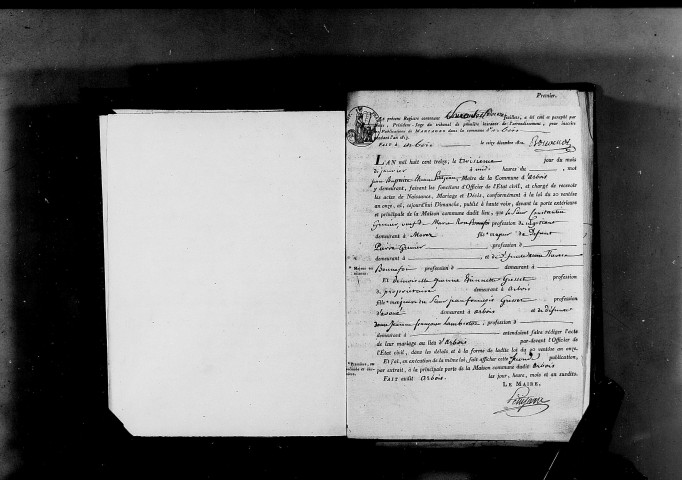 Premier.
Le présent Registre contenant feuillets, a été coté et paraphé par
nous, Président-Juge du tribunal de première instance de l'arrondissement, pour inscrire
les Publications de MARIAGES dans la commune d'arbois
pendant l'an 1813.
FAIT A arbois le onze décembre 1812
LAN mil huit cent treize, le troisieme jour du mois
de janvier à midi heures du , nous
Maire de la Commune d'arbois
y demeurant, faisant les fonctions d'Officier de l'Etat civil, et chargé de recevoir
les actes de Naissance, Mariage et Décès, conformément à la loi du 20 ventôse
an onze, ai, cejourd'hui Dimanche, publié à haute voix, devant la porte extérieure
et principale de la Maison commune dudit lieu, que le Sieur Constantin
Grenier, veuf de Marie profession de
demeurant à Morez fils majeur de défunt
Pierre Grenier profession d
demeurant à et de défunte
* Majeur ou mineur.
Bonnefoi profession d demeurant à
Et demoiselle Jeanne Guisset profession
de propriétaire demeurant à arbois
fille majeure du Sieur jean françois Guisset profession
d'avoué demeurant à arbois et de défunte
dame Jeanne françoise Lambert , profession d
demeurant à entendoient faire rédiger l'acte
de leur mariage au lieu d'Arbois par-devant l'Officier de
l'Etat civil, dans les délais et à la forme de ladite loi du 20 ventôse an onze.
Et j'ai, en exécution de la même loi, fait afficher cette seconde publication,
* Première, ou seconde et dernière.
par extrait, à la principale porte de la Maison commune dudit arbois
FAIT audit arbois. les jour, heure, mois et an susdits.
LE MAIRE,